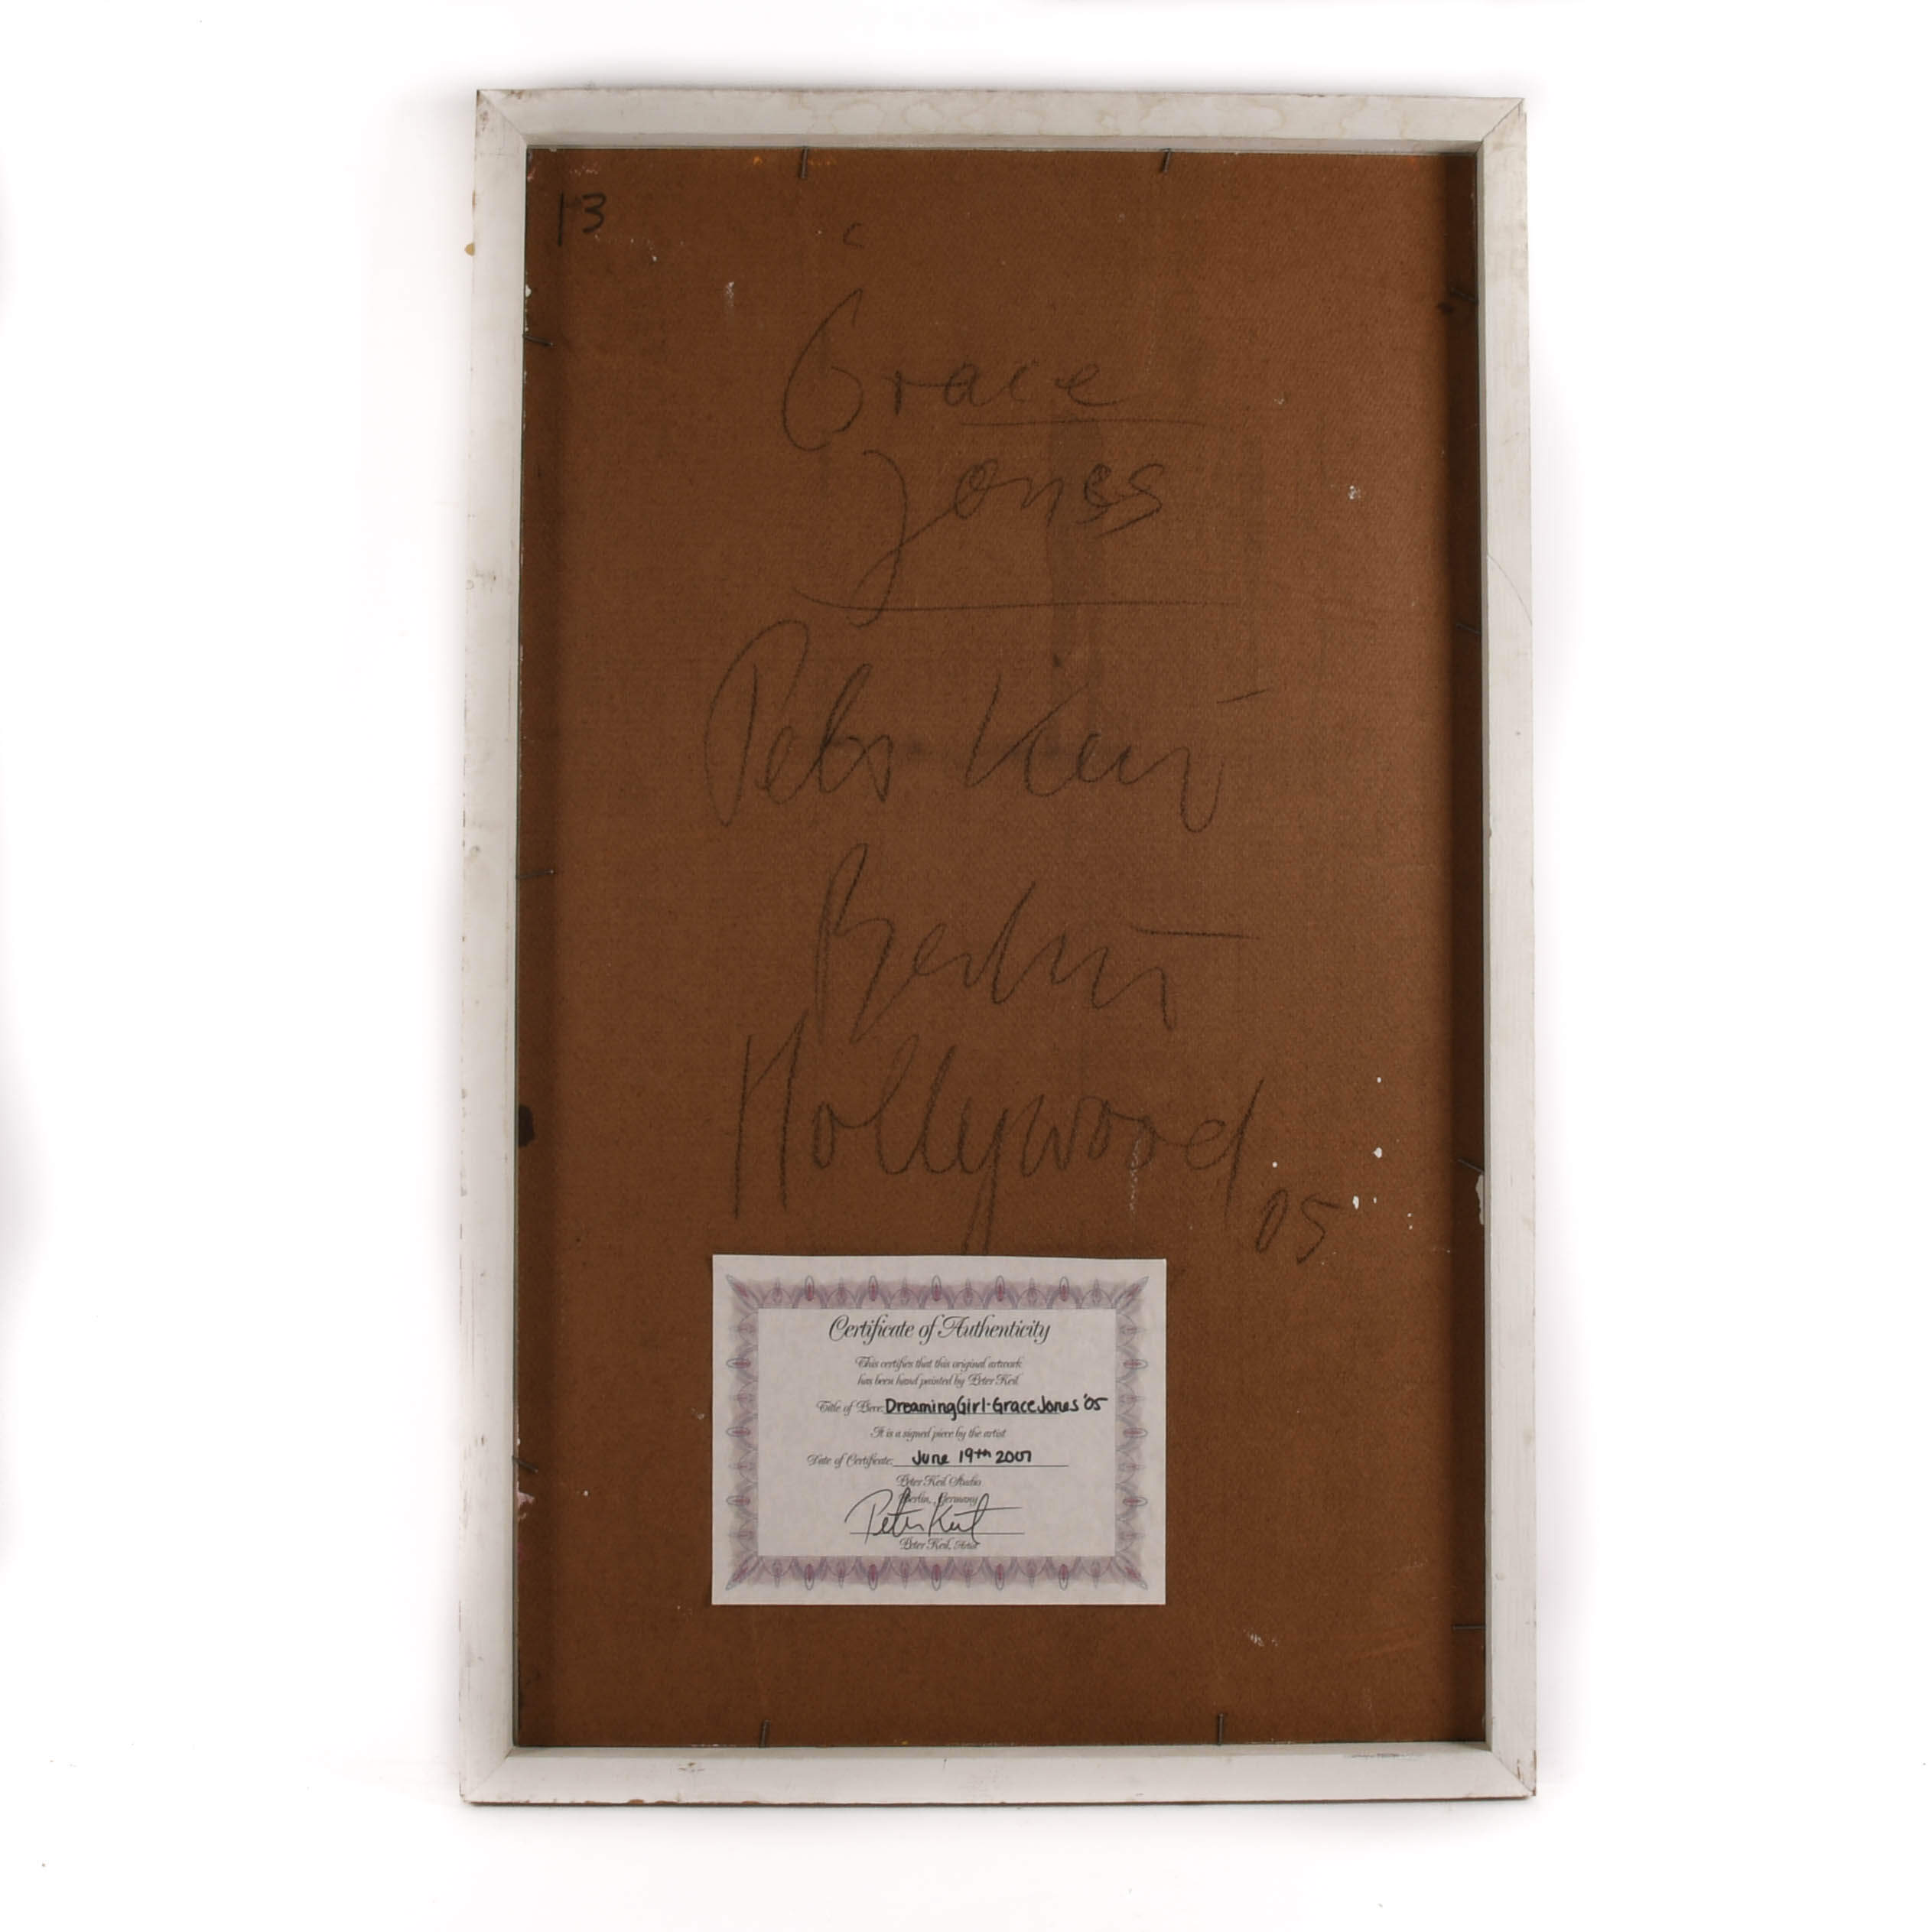 13
Grace
Jones
Peter Keil
Berlin
Hollywood
05
Certificate of Authenticity
This certifies that this original artwork
has been hand painted by Peter Keil
Title of Piece: Dreaming Girl-Grace Jones '05
It is a signed piece by the artist
Date of Certificate: June 19th 2007
Peter Keil Studio
Berlin, Germany
Peter Keil
Peter Keil, Artist